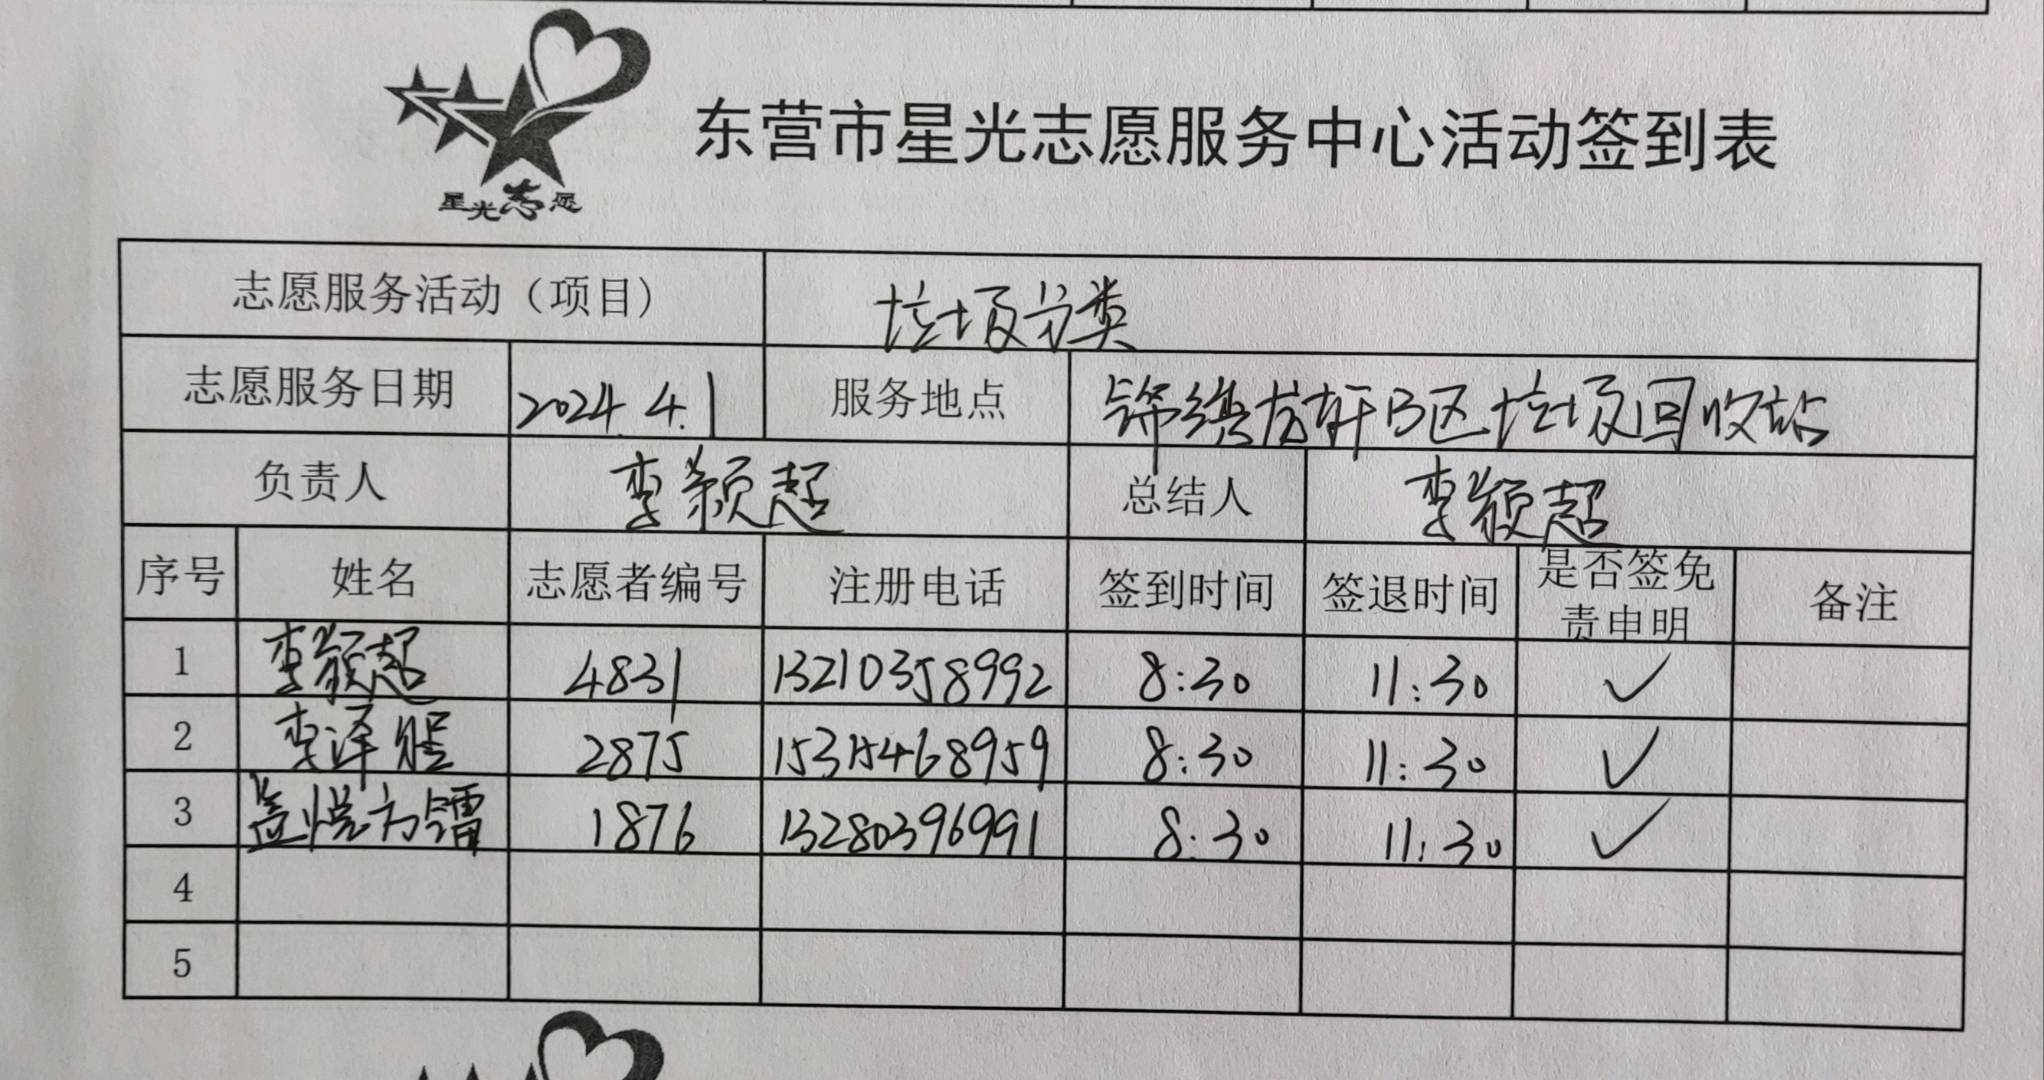 星光志愿
东营市星光志愿服务中心活动签到表
志愿服务活动（项目） 垃圾分类
志愿服务日期 2024.4.1 服务地点 锦绣龙轩B区垃圾回收站
负责人 李颖超 总结人 李颖超
序号 姓名 志愿者编号 注册电话 签到时间 签退时间 是否签免责申明 备注
1 李颖超 4831 13210358992 8:30 11:30 ✓
2 李泽 2875 15315468959 8:30 11:30 ✓
3 盖悦方镭 1876 13280396991 8:30 11:30 ✓
4
5